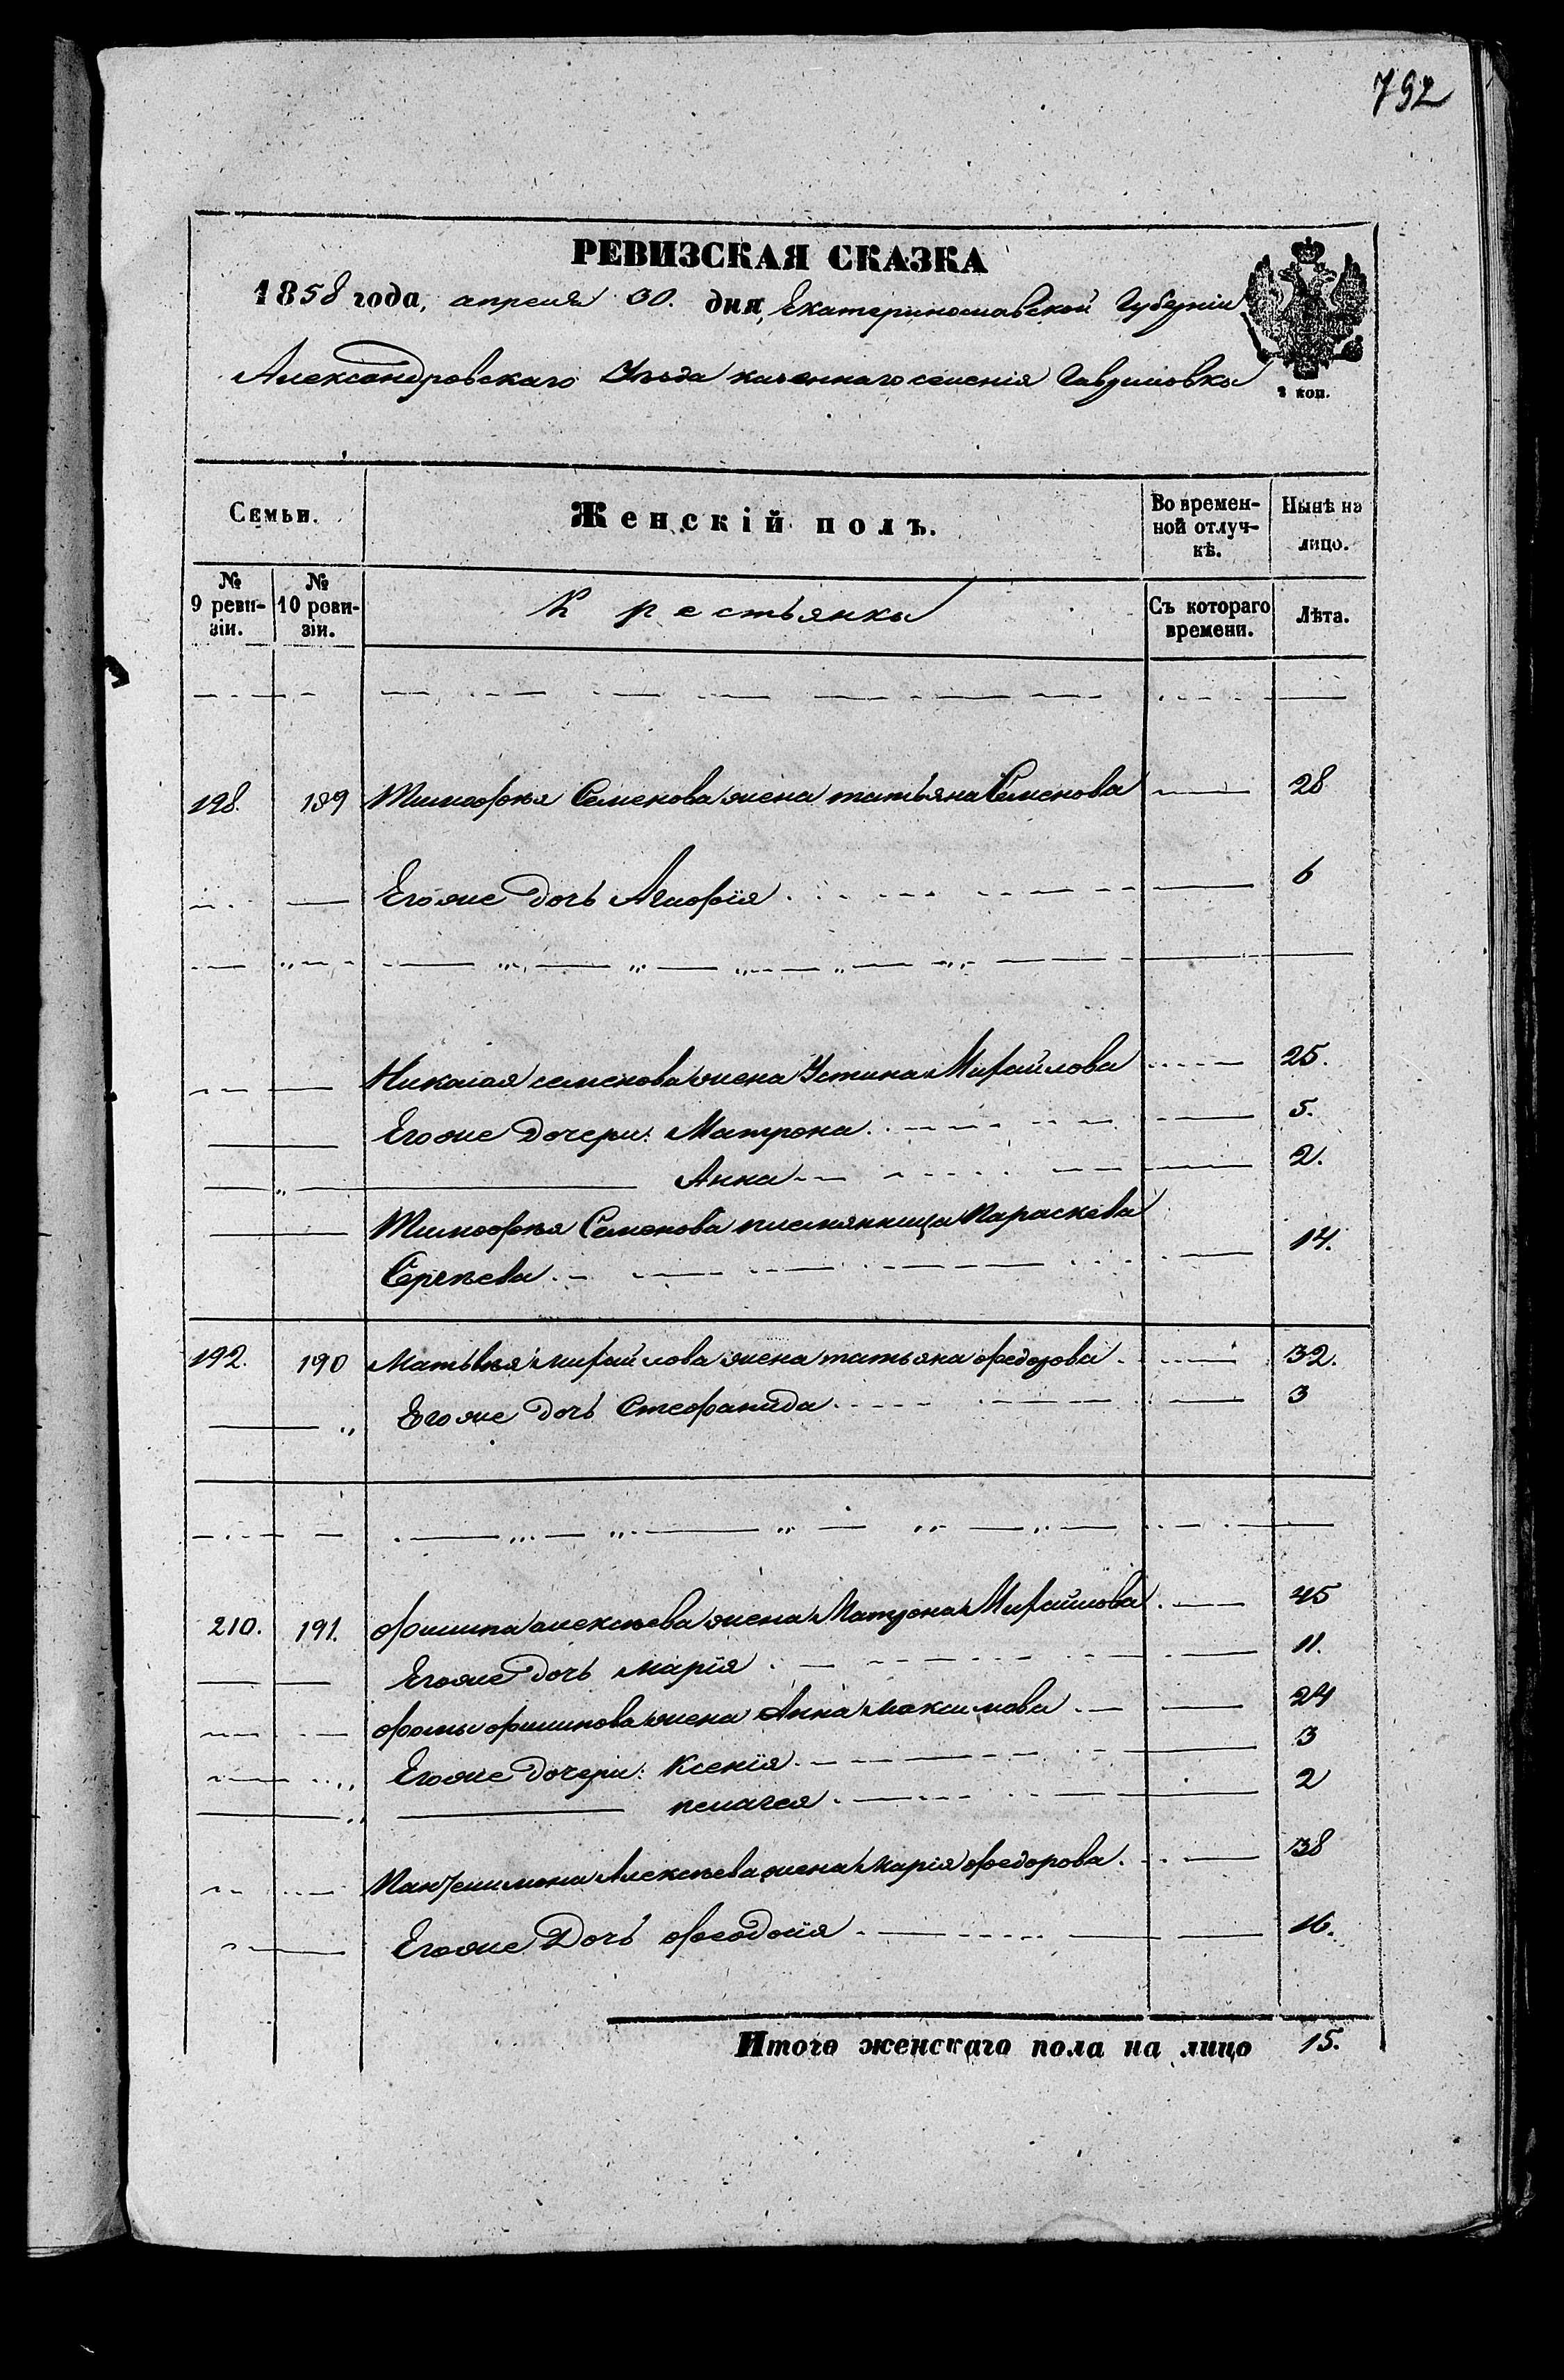 792
РЕВИЗСКАЯ СКАЗКА
1858 года, апреля 30. дня, Екатеринославской Губерніи
Александровскаго Уѣзда казеннаго селенія Гавриловки
2 коп.
Семьи. Женскій полъ. Во времен- Нынѣ на
ной отлуч- лицо.
кѣ.
№ № Крестьянки Съ котораго Лѣта.
9 реви- 10 реви- времени.
зіи. зіи.
198. 189 Тимофѣя Семенова жена татьяна Семенова 28
Его же дочь Агиофія 6
Николая семенова жена Устина Михайлова 25.
Его же дочери: Матрона 5.
Анна 2.
Тимофѣя Семенова племянница Параскева
Сергѣева 14.
192. 190 Матвѣя михайлова жена татьяна федорова 32.
Его же дочь Стефанида 3
210. 191. филипа алексѣева жена Матрона Михайлова 45
Его же дочь марія 11.
фомы филипова жена Анна максимова 24
Его же дочери: Ксенія 3
пелагея 2
Пантелимона Алексѣева жена марія федорова 38
Его же Дочь феодосія 16.
Итого женскаго пола на лицо 15.